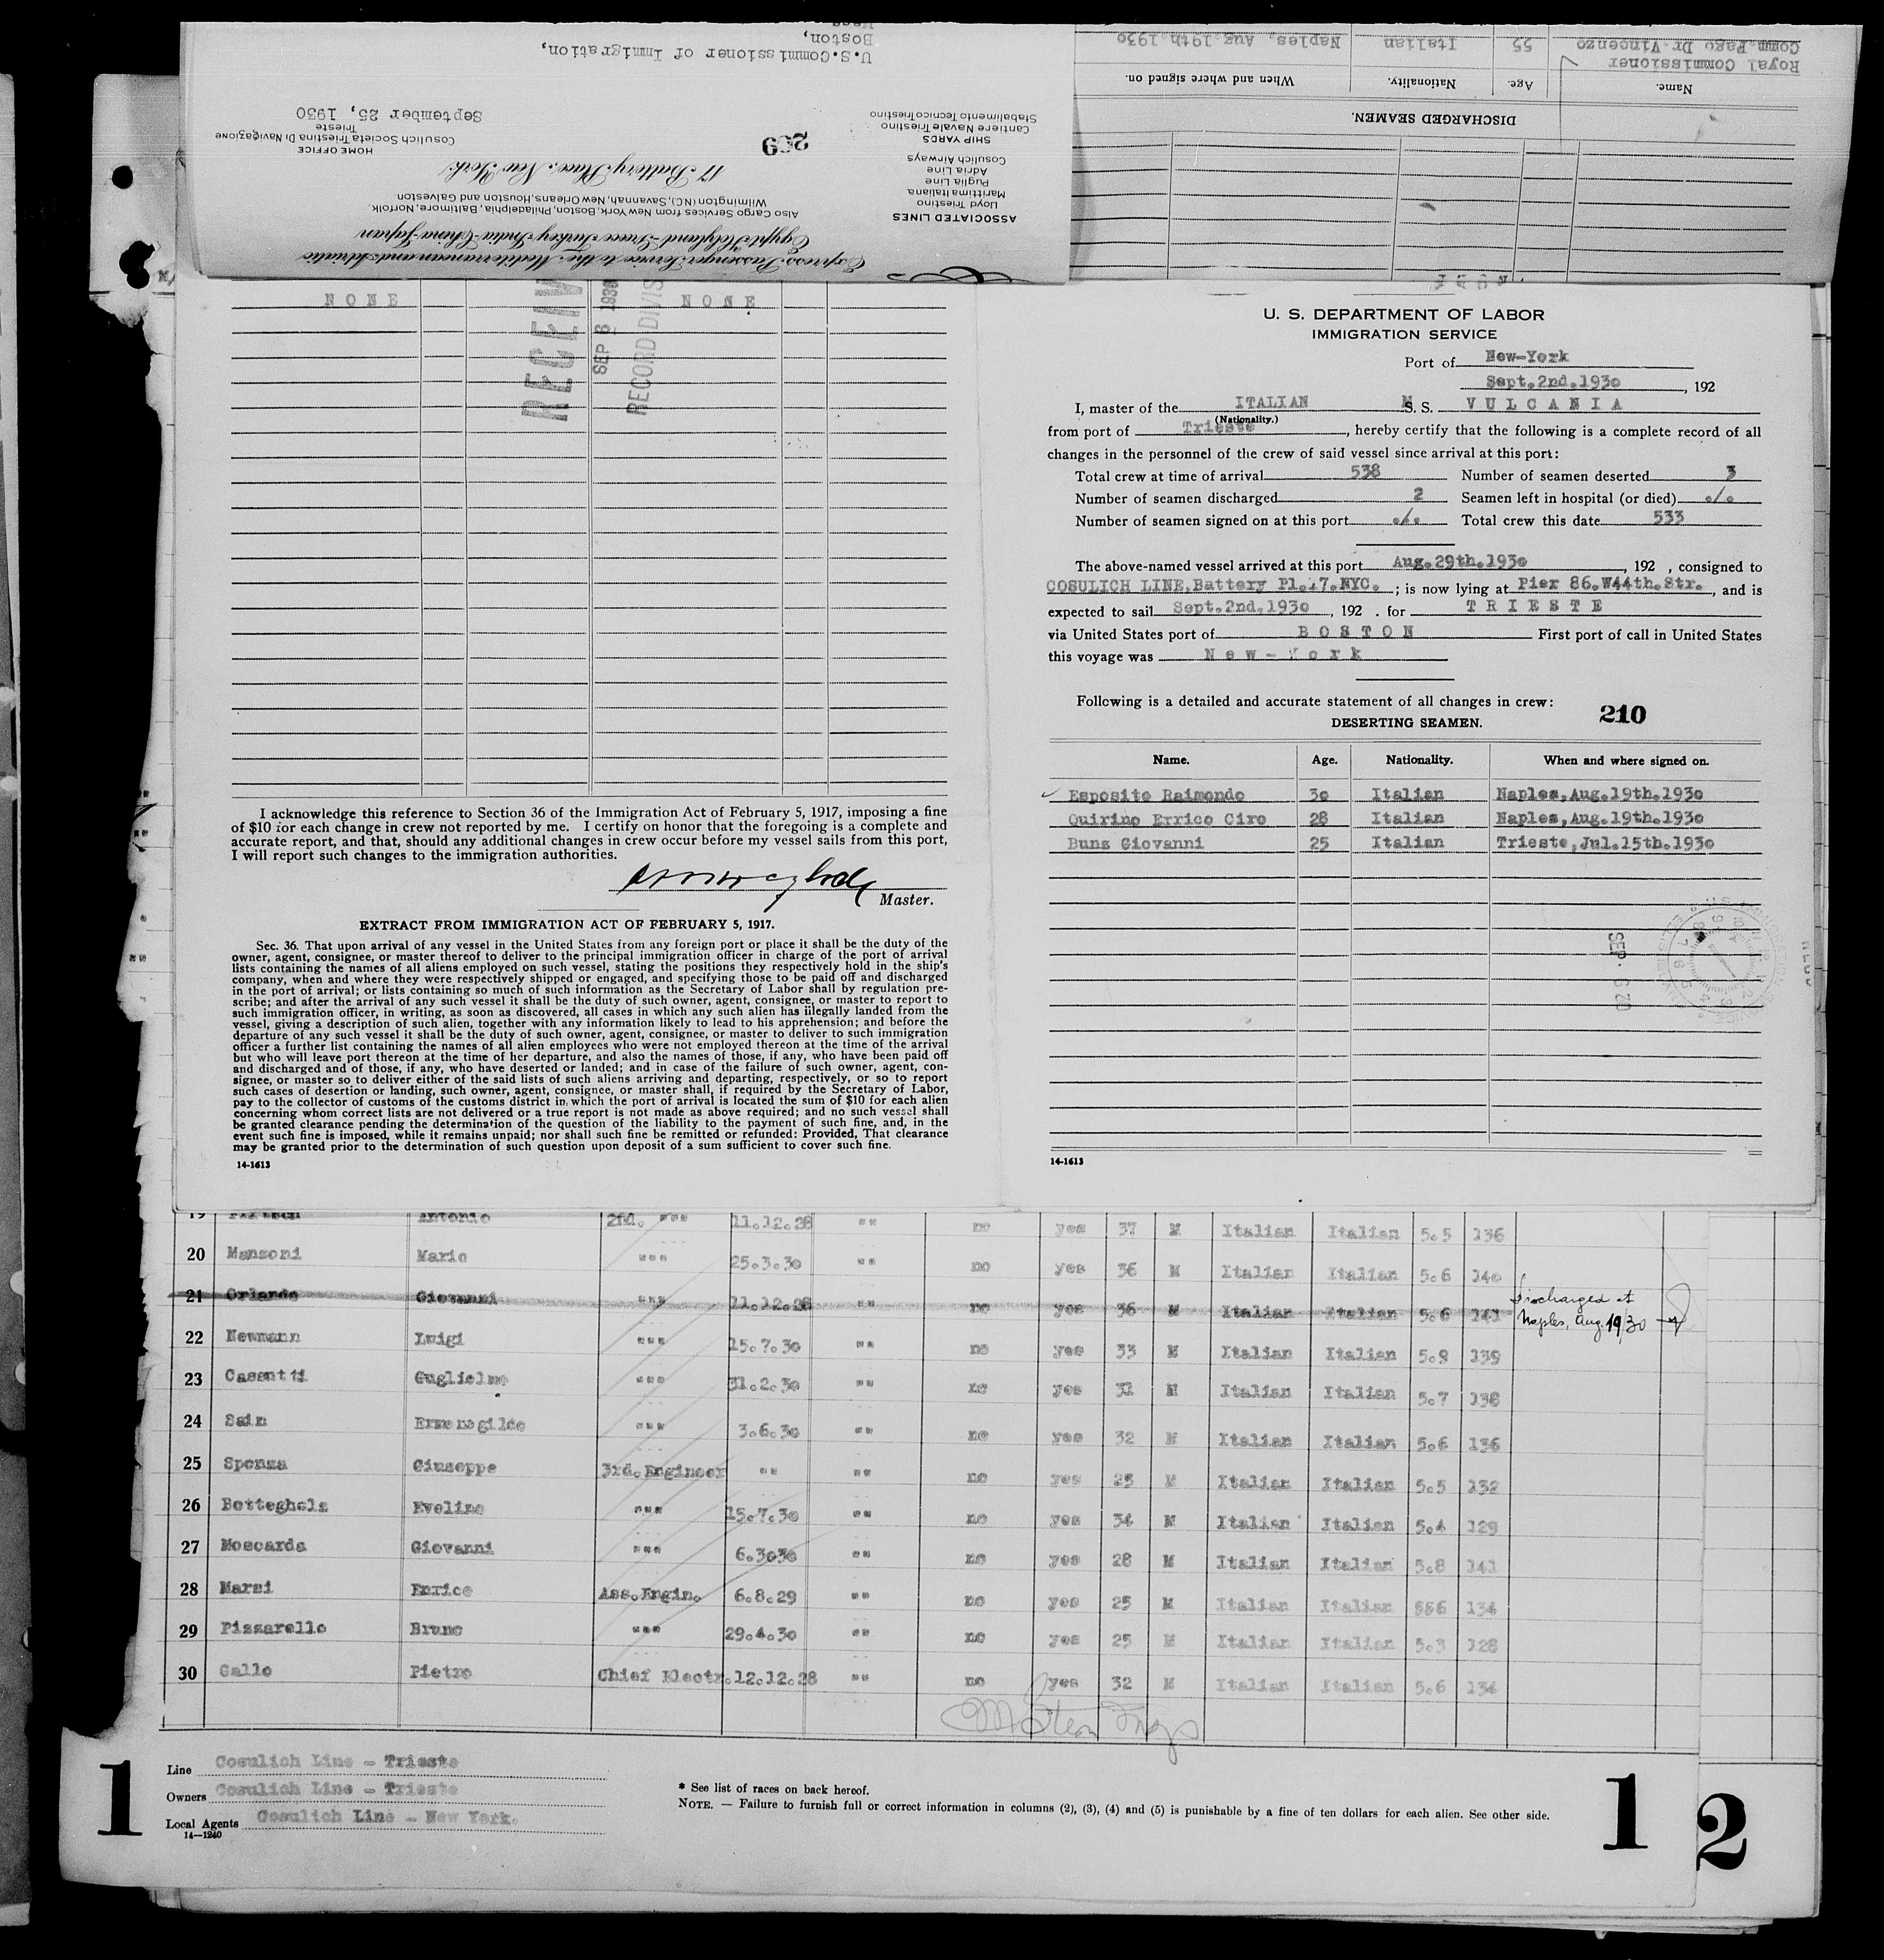 U.S.Commissioner of Immigration,
Boston,
September 25, 1930
HOME OFFICE
Cosulich Societa Triestina Di Navigazione
Trieste
17 Battery Place, New York
ASSOCIATED LINES
Lloyd Triestino
Marittima Italiana
Puglia Line
Adria Line
Cosulich Airways
SHIP YARDS
Cantiere Navale Triestino
Stabilimento Tecnico Triestino
Also Cargo Services from New York, Boston, Philadelphia, Baltimore, Norfolk,
Wilmington (NC), Savannah, New Orleans, Houston and Galveston.
Express Passenger Service to the Mediterranean and Adriatic
Egypt-Holyland-Greece-Turkey-India-China-Japan
DISCHARGED SEAMEN.
Name. Age. Nationality. When and where signed on.
Royal Commissioner
Comm. Pago Dr. Vincenzo 55 Italian Naples, Aug.19th.1930
NONE NONE
SEP 6 1930
I acknowledge this reference to Section 36 of the Immigration Act of February 5, 1917, imposing a fine
of $10 for each change in crew not reported by me. I certify on honor that the foregoing is a complete and
accurate report, and that, should any additional changes in crew occur before my vessel sails from this port,
I will report such changes to the immigration authorities.
Master.
EXTRACT FROM IMMIGRATION ACT OF FEBRUARY 5, 1917.
Sec. 36. That upon arrival of any vessel in the United States from any foreign port or place it shall be the duty of the
owner, agent, consignee, or master thereof to deliver to the principal immigration officer in charge of the port of arrival
lists containing the names of all aliens employed on such vessel, stating the positions they respectively hold in the ship's
company, when and where they were respectively shipped or engaged, and specifying those to be paid off and discharged
in the port of arrival; or lists containing so much of such information as the Secretary of Labor shall by regulation pre-
scribe; and after the arrival of any such vessel it shall be the duty of such owner, agent, consignee, or master to report to
such immigration officer, in writing, as soon as discovered, all cases in which any such alien has illegally landed from the
vessel, giving a description of such alien, together with any information likely to lead to his apprehension; and before the
departure of any such vessel it shall be the duty of such owner, agent, consignee, or master to deliver to such immigration
officer a further list containing the names of all alien employees who were not employed thereon at the time of the arrival
but who will leave port thereon at the time of her departure, and also the names of those, if any, who have been paid off
and discharged and of those, if any, who have deserted or landed; and in case of the failure of such owner, agent, con-
signee, or master so to deliver either of the said lists of such aliens arriving and departing, respectively, or so to report
such cases of desertion or landing, such owner, agent, consignee, or master shall, if required by the Secretary of Labor,
pay to the collector of customs of the customs district in which the port of arrival is located the sum of $10 for each alien
concerning whom correct lists are not delivered or a true report is not made as above required; and no such vessel shall
be granted clearance pending the determination of the question of the liability to the payment of such fine, and, in the
event such fine is imposed, while it remains unpaid; nor shall such fine be remitted or refunded: Provided, That clearance
may be granted prior to the determination of such question upon deposit of a sum sufficient to cover such fine.
14-1613
U. S. DEPARTMENT OF LABOR
IMMIGRATION SERVICE
Port of New-York
Sept.2nd.1930, 192
I, master of the ITALIAN M S. S. VULCANIA
(Nationality.)
from port of Trieste, hereby certify that the following is a complete record of all
changes in the personnel of the crew of said vessel since arrival at this port:
Total crew at time of arrival 538 Number of seamen deserted 3
Number of seamen discharged 2 Seamen left in hospital (or died) ./.
Number of seamen signed on at this port ./. Total crew this date 533
The above-named vessel arrived at this port Aug.29th.1930, 192 , consigned to
COSULICH LINE.Battery Pl.17.NYC. ; is now lying at Pier 86.W44th.Str., and is
expected to sail Sept.2nd.1930, 192 . for TRIESTE
via United States port of BOSTON First port of call in United States
this voyage was New-York
Following is a detailed and accurate statement of all changes in crew:
210
DESERTING SEAMEN.
Name. Age. Nationality. When and where signed on.
Esposito Raimondo 30 Italian Naples,Aug.19th.1930
Quirino Errico Ciro 28 Italian Naples,Aug.19th.1930
Bunz Giovanni 25 Italian Trieste,Jul.15th.1930
14-1613
19 Antonio 2nd. """ 11.12.28 "" no yes 37 M Italian Italian 5.5 136
20 Manzoni Mario """ 25.3.30 "" no yes 36 M Italian Italian 5.6 140
21 Orlando Giovanni """ 11.12.28 "" no yes 36 M Italian Italian 5.6 141 Discharged at
Naples, Aug. 19/30
22 Newmann Luigi """ 15.7.30 "" no yes 33 M Italian Italian 5.9 139
23 Casentti Guglielmo """ 31.2.30 "" no yes 31 M Italian Italian 5.7 138
24 Sain Ermenegildo """ 3.6.30 "" no yes 32 M Italian Italian 5.6 136
25 Sponza Giuseppe 3rd.Engineer "" "" no yes 25 M Italian Italian 5.5 132
26 Botteghela Eveline """ 15.7.30 "" no yes 34 M Italian Italian 5.4 129
27 Moscarda Giovanni """ 6.3030 "" no yes 28 M Italian Italian 5.8 141
28 Marsi Enrico Ass.Engin. 6.8.29 "" no yes 25 M Italian Italian 556 134
29 Pizzarello Bruno """ 29.4.30 "" no yes 25 M Italian Italian 5.3 128
30 Gallo Pietro Chief Electr. 12.12.28 "" no yes 32 M Italian Italian 5.6 134
1
Line Cosulich Line - Trieste
Owners Cosulich Line - Trieste
Local Agents Cosulich Line - New York.
14-1240
* See list of races on back hereof.
NOTE. — Failure to furnish full or correct information in columns (2), (3), (4) and (5) is punishable by a fine of ten dollars for each alien. See other side.
1
2